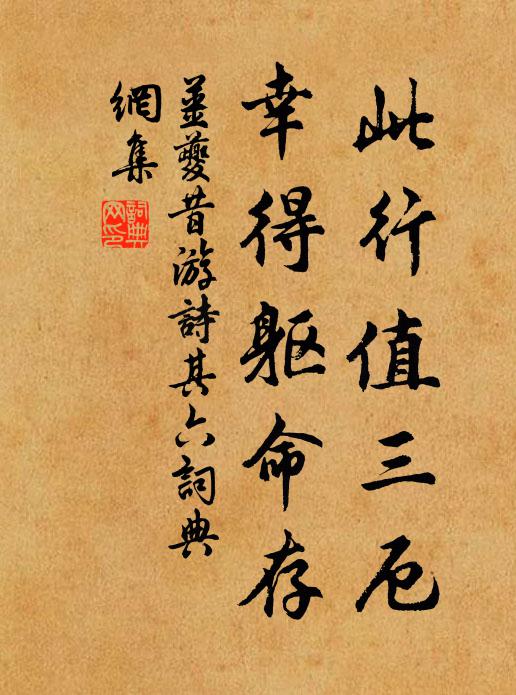 此行值三厄
幸得躯命存
姜夔昔游詩其六詞典
網集
詞典
网印